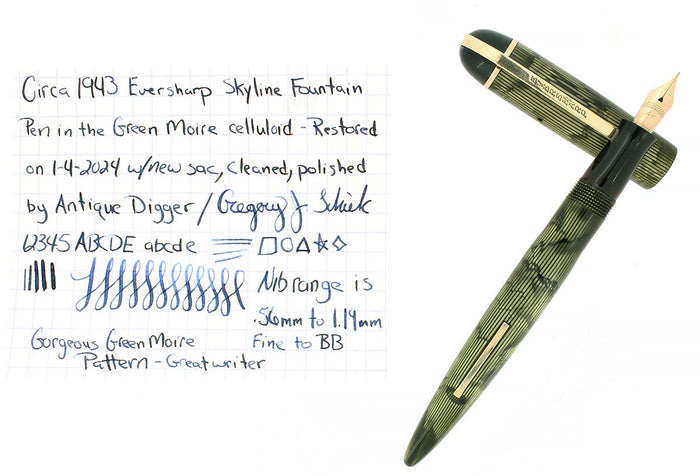 Circa 1943 Eversharp Skyline Fountain
Pen in the Green Moire celluloid - Restored
on 1-4-2024 w/new sac, cleaned, polished
by Antique Digger / Gregory J Schick
12345 ABCDE abcde
Nib range is
.56mm to 1.19mm
Fine to BB
Gorgeous Green Moire
Pattern - Great writer
EVERSHARP